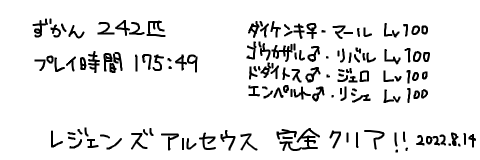 ずかん 242匹
プレイ時間 175:49
ダイケンキ♀・マール Lv100
ゴウカザル♂・リバル Lv100
ドダイトス♂・ジェロ Lv100
エンペルト♂・リシェ Lv100
レジェンズ アルセウス 完全クリア!! 2022.8.14